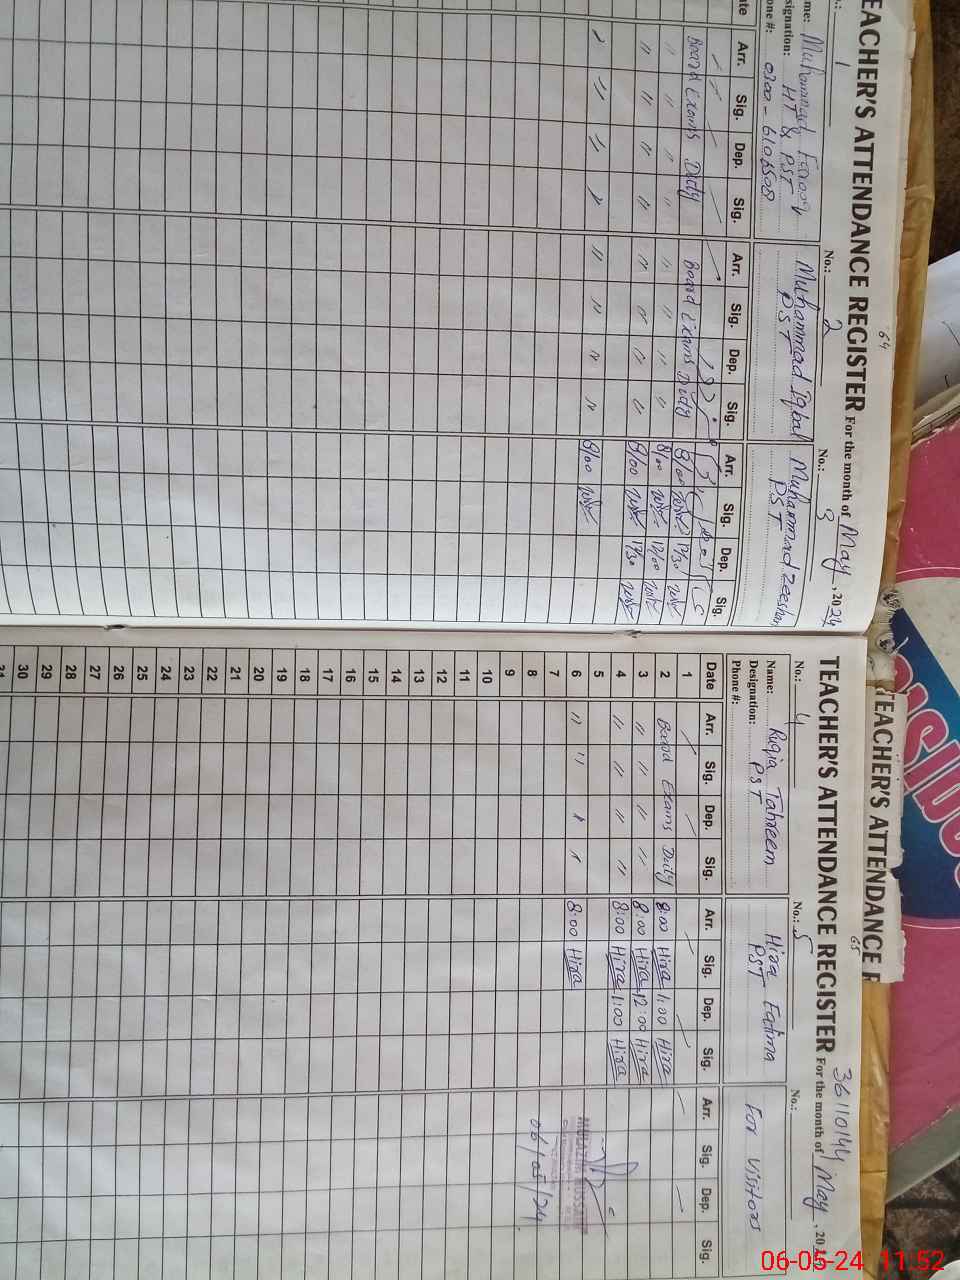 TEACHER'S ATTENDANCE REGISTER For the month of May, 2024
64
No.: 1
Name: Muhammad Farooq
Designation: HT & PST
Phone #: 0300-6106508
No.: 2
Muhammad Iqbal
PST
No.: 3
Muhammad Zeeshan
PST
Date Arr. Sig. Dep. Sig. Arr. Sig. Dep. Sig. Arr. Sig. Dep. Sig.
Board Exams Duty Board Exams Duty 8/00
" " " " " " " " 8/00 12/00
" " " " " " " " 8/00
" " " " " " " " 8/00
TEACHER'S ATTENDANCE REGISTER For the month of May, 20
36110144
65
No.: 4
Name: Ruqia Tahreem
Designation: PST
Phone #:
No.: 5
Hira Fatima
PST
No.:
For Visitors
Date Arr. Sig. Dep. Sig. Arr. Sig. Dep. Sig. Arr. Sig. Dep. Sig.
1
2 Board Exams Duty 8:00 Hira 1:00 Hira
3 " " " " 8:00 Hira 12:00 Hira
4 " " " " 8:00 Hira 1:00 Hira
5
6 " " " " 8:00 Hira
7
8 06/05/24
9
10
11
12
13
14
15
16
17
18
19
20
21
22
23
24
25
26
27
28
29
30
31
TEACHER'S ATTENDANCE R
06-05-24 11:52